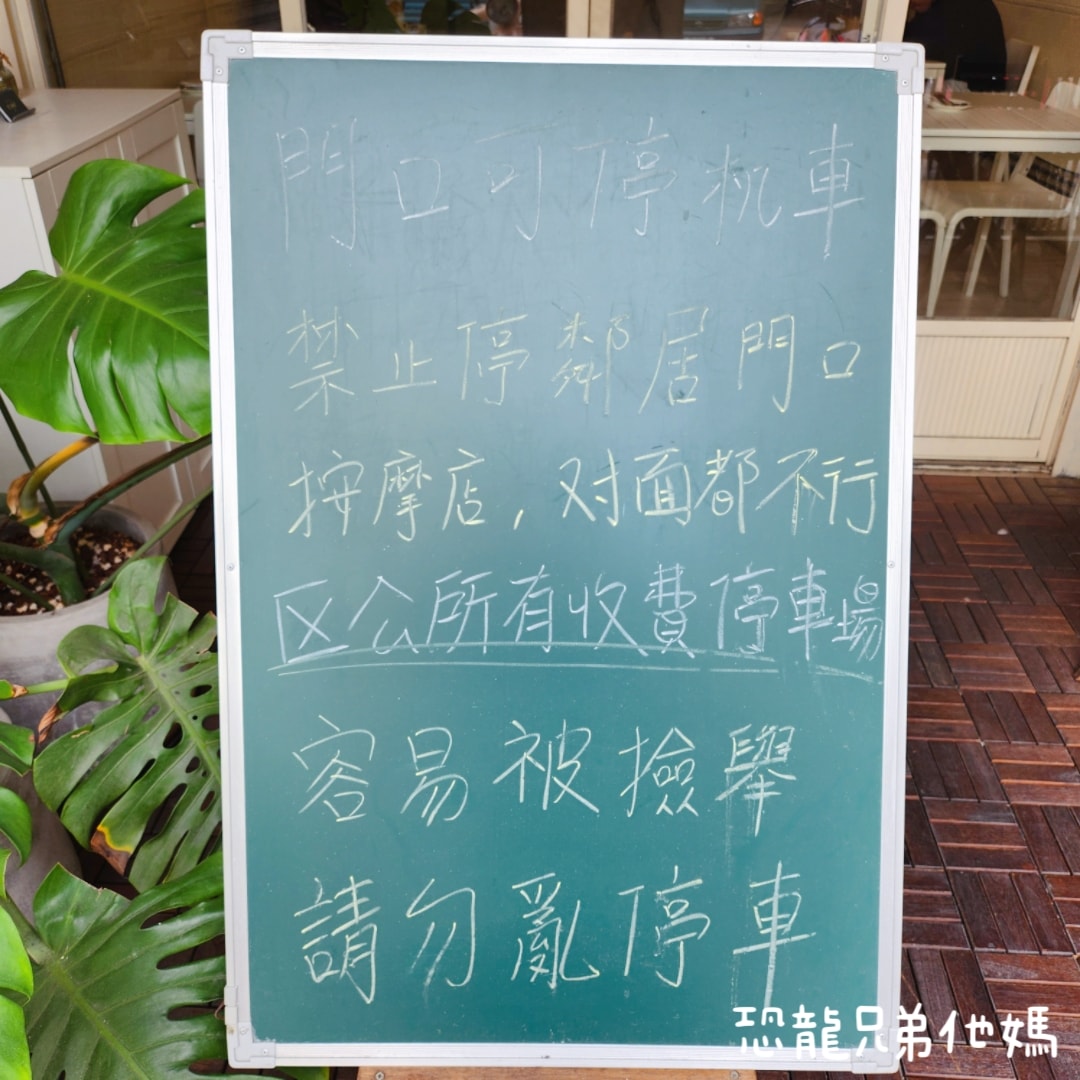 門口可停机車
禁止停鄰居門口
按摩店，对面都不行
区公所有收費停車場
容易被撿舉
請勿亂停車
恐龍兄弟他媽